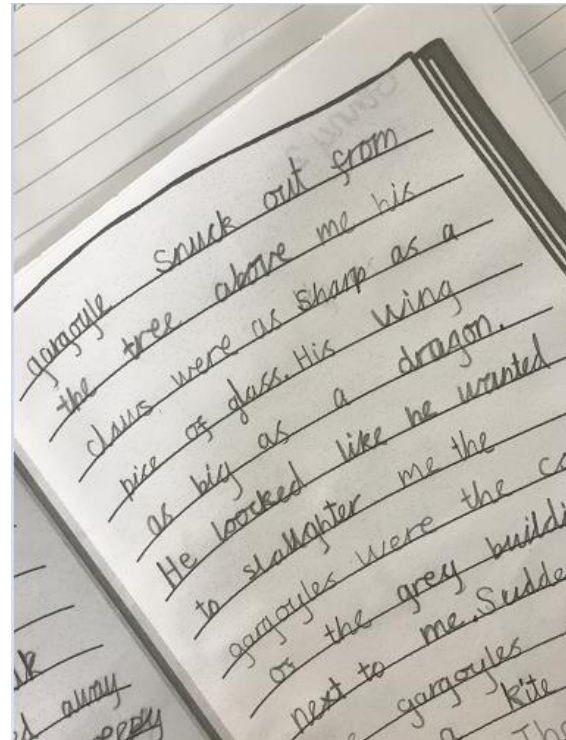 gargoyle snuck out from
the tree above me his
claws were as sharp as a
pice of glass. His wing
as big as a dragon.
He loocked like he wanted
to slaughter me the
gargoyles were the
of the grey buildi
next to me. Sudde
gargoyles
a kite
away